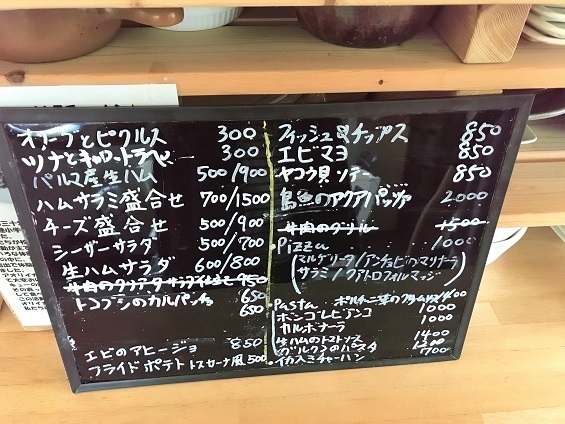 オリーブとピクルス 300
ツナとキャロットラペ 300
パルマ産生ハム 500/900
ハムサラミ盛合せ 700/1500
チーズ盛合せ 500/900
シーザーサラダ 500/700
生ハムサラダ 600/800
牛肉のタリアータ 950
トコブシのカルパッチョ 650
650
エビのアヒージョ 850
フライドポテトトスカーナ風 500
フィッシュ&チップス 850
エビマヨ 850
ヤコウ貝ソテー 850
島魚のアクアパッツァ 2000
牛肉のグリル 1500
・Pizza 1000
(マルゲリータ/アンチョビのマリナーラ
サラミ/クアトロフォルマッジ)
・Pasta ポルチーニ茸の 1400
ボンゴレビアンコ 1000
カルボナーラ 1000
生ハムのトマトソース 1400
のパスタ 1200
・イカスミチャーハン 700